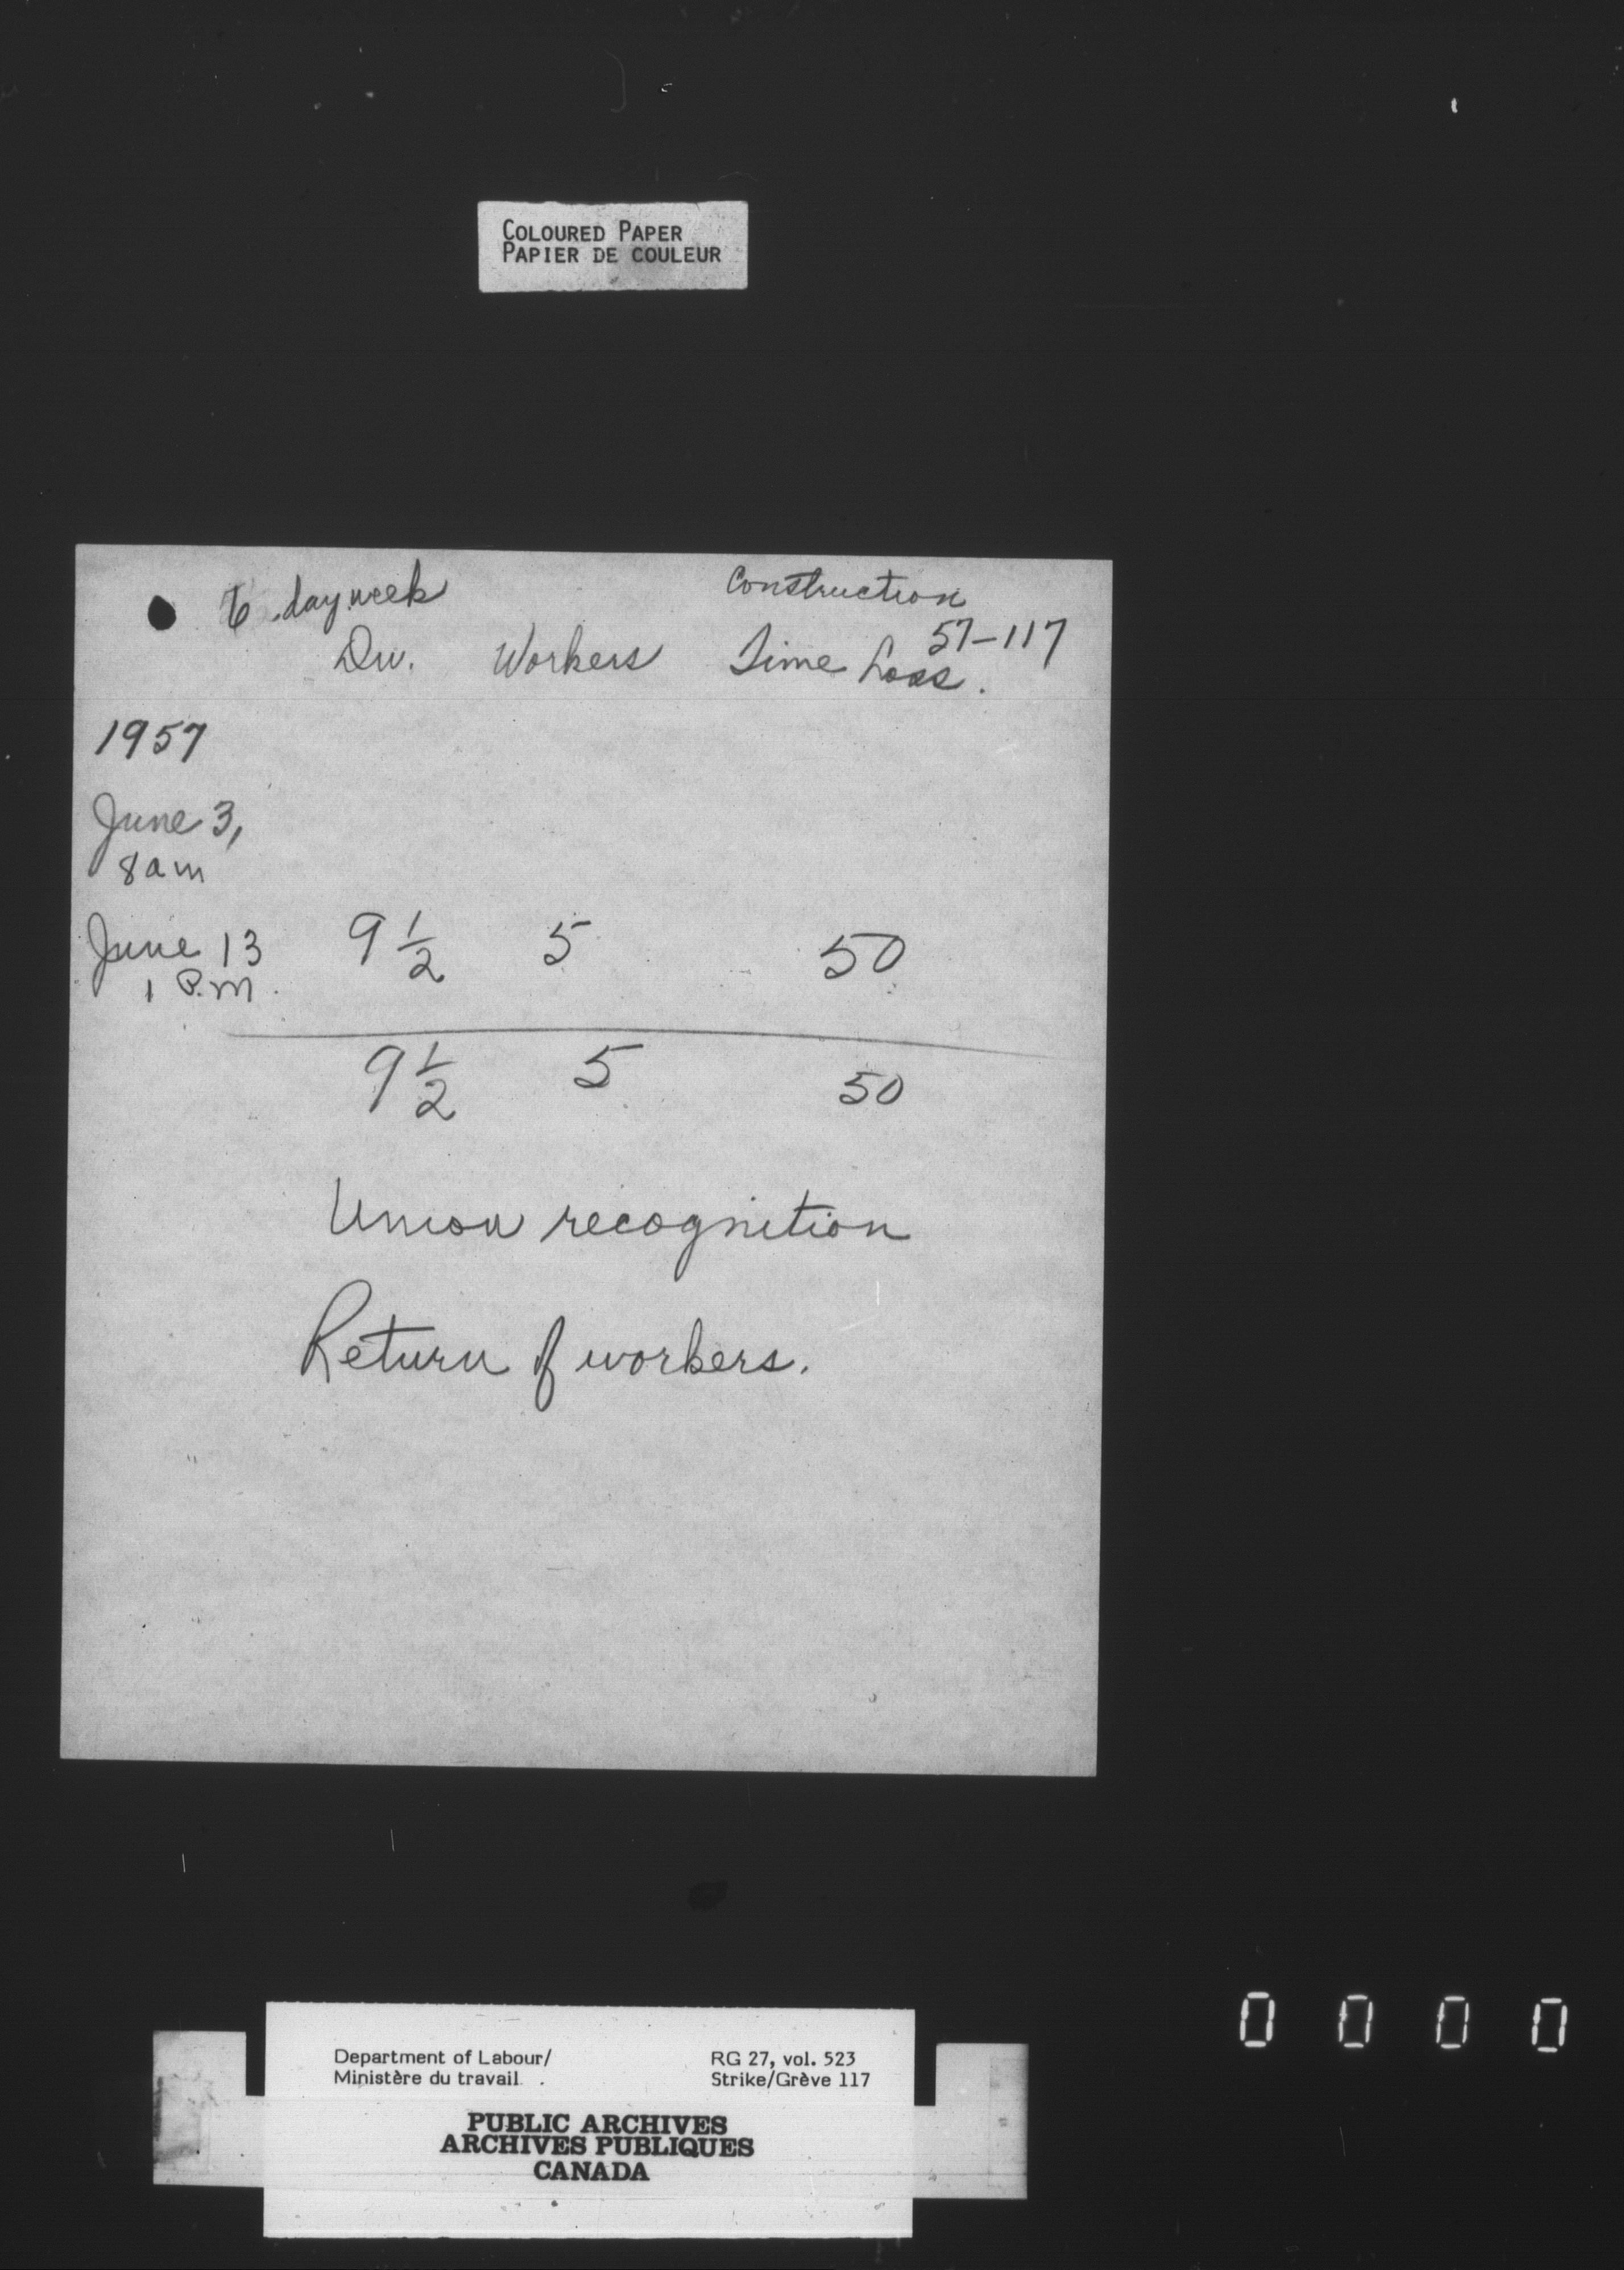 COLOURED PAPER
PAPIER DE COULEUR
6 day week Construction
57-117
Du. Workers Time Loss.
1957
June 3,
8 am
June 13 9 1/2 5 50
1 P.m.
9 1/2 5 50
Union recognition
Return of workers.
0 0 0 0
Department of Labour/ RG 27, vol. 523
Ministère du travail Strike/Grève 117
PUBLIC ARCHIVES
ARCHIVES PUBLIQUES
CANADA